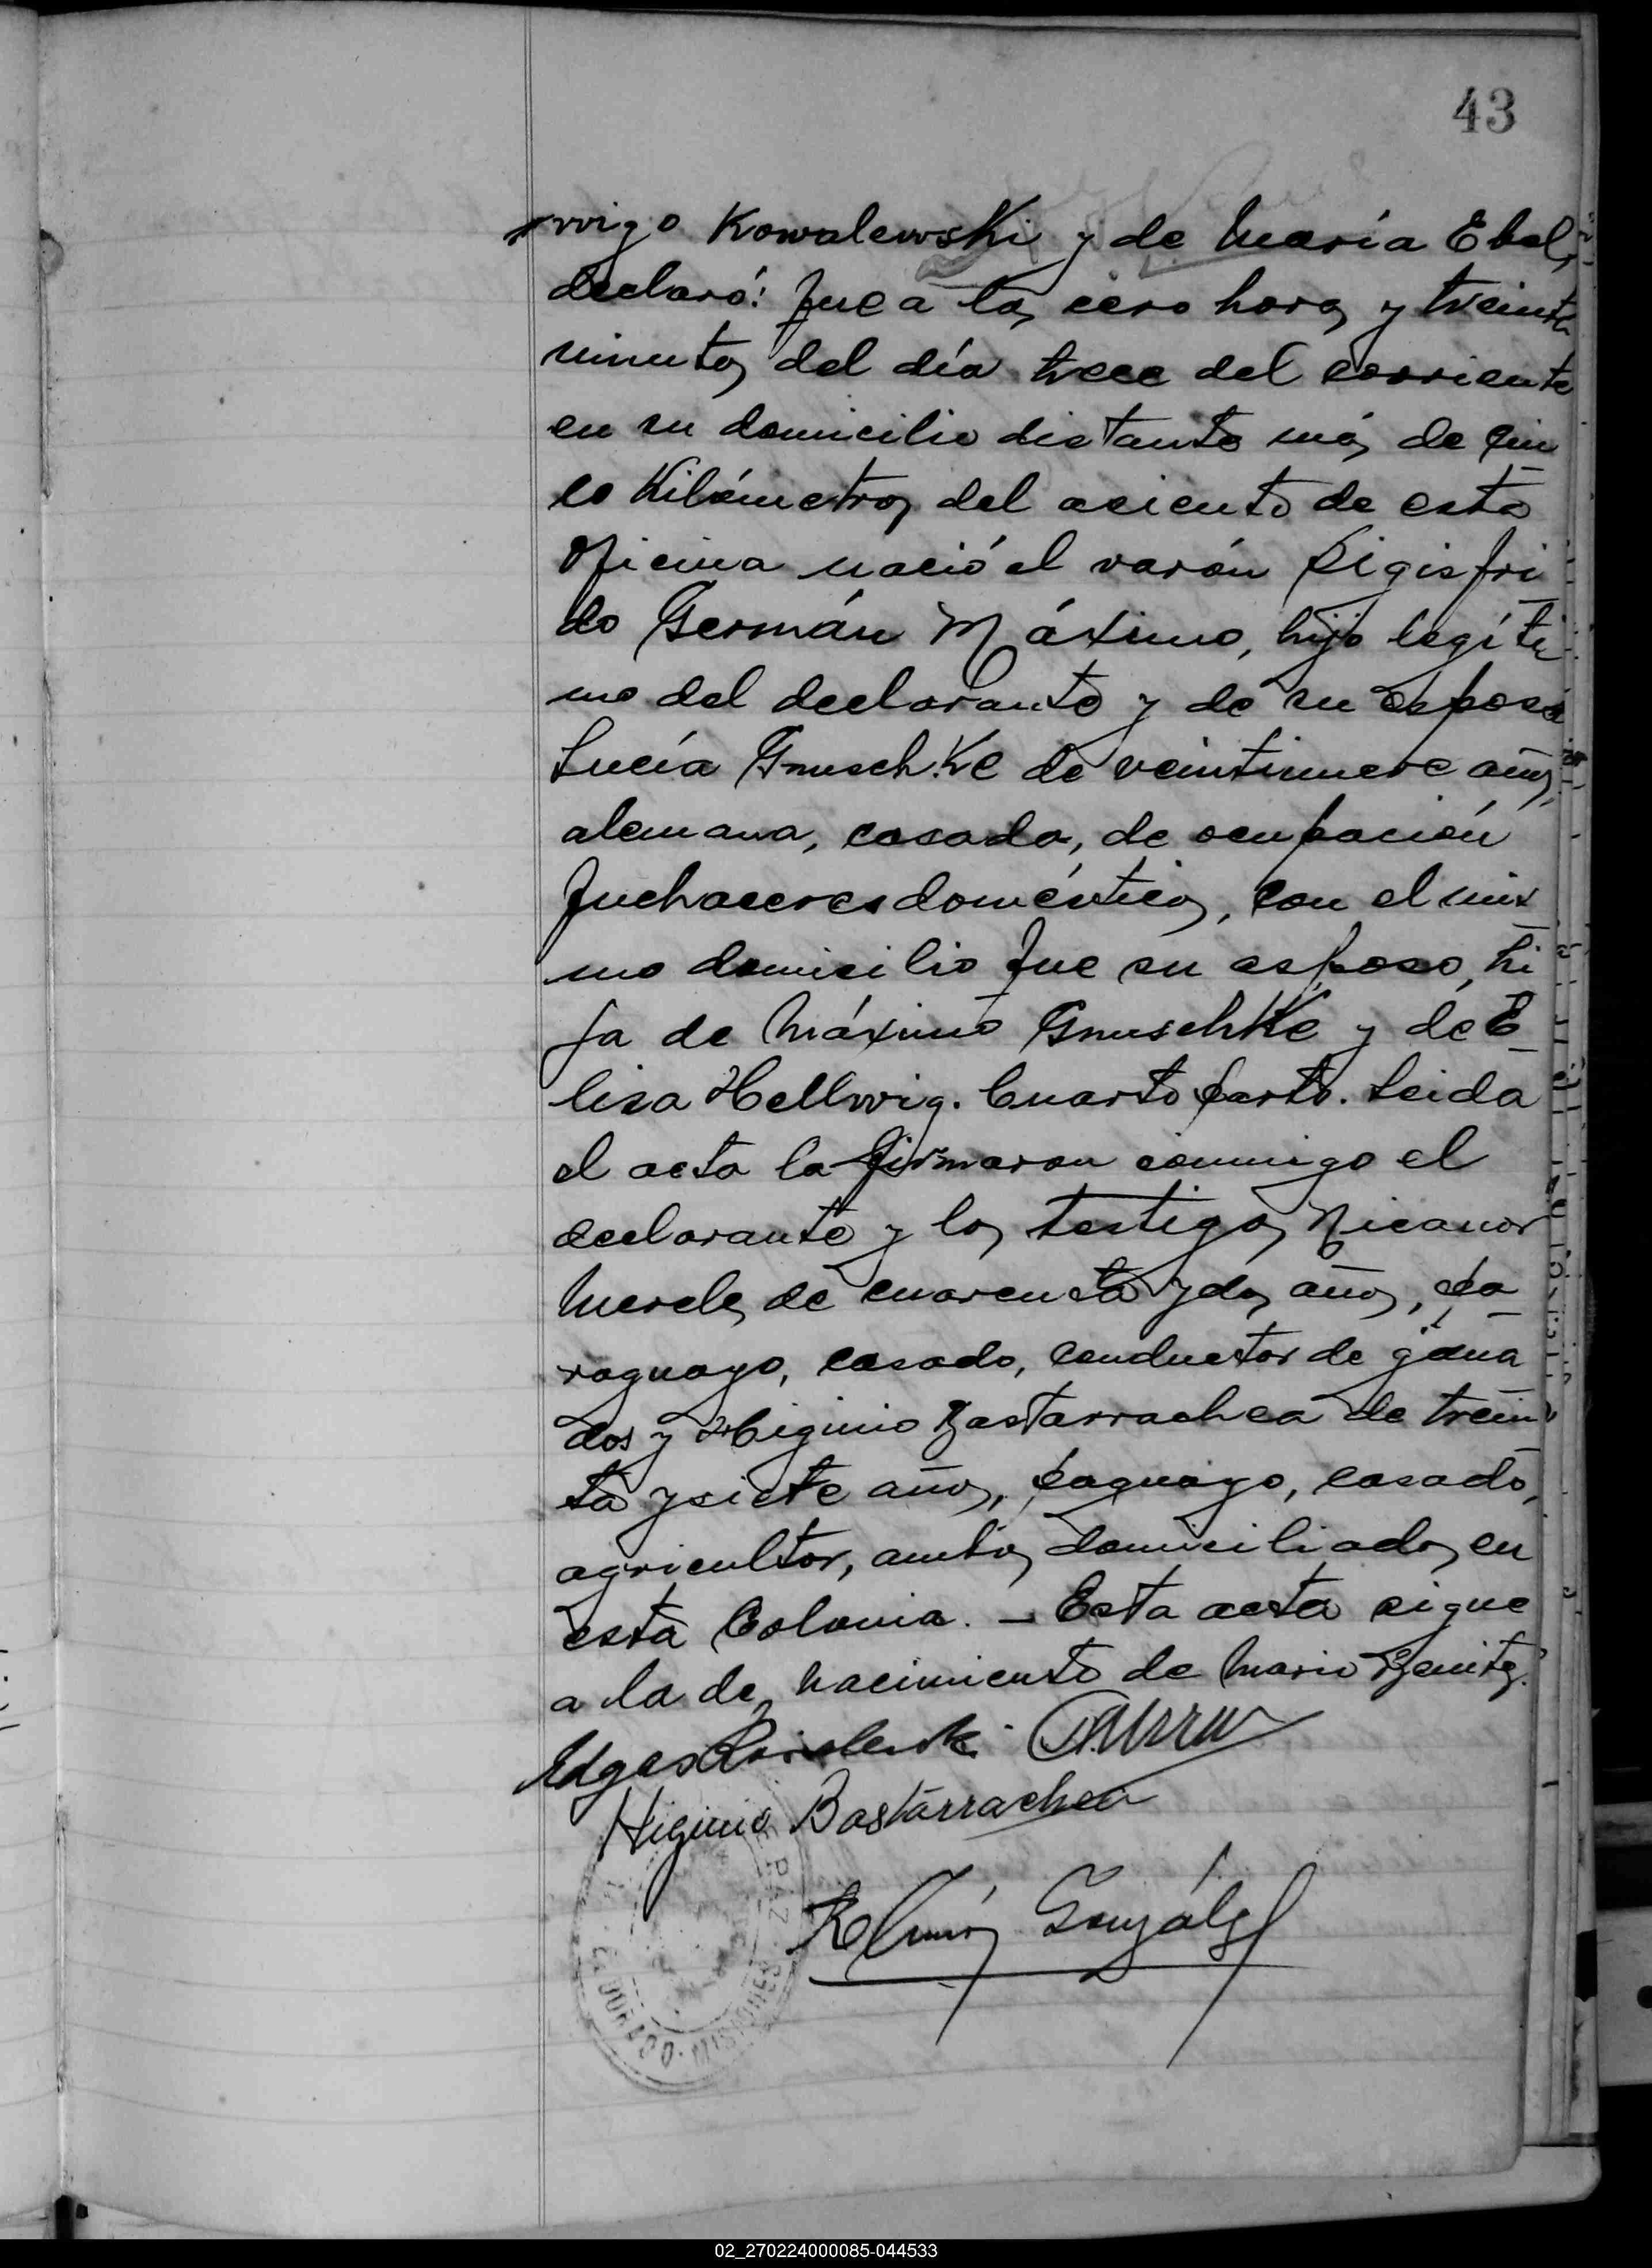 43
wigo Kowalewski y de María Ebel,
declaró: Que a las cero horas y treinta
minutos del día trece del corriente
en su domicilio distante más de cin
co Kilómetros del asiento de esta
Oficina nació el varón Sigisfri
do Germán Máximo, hijo legíti
mo del declarante y de su esposa
Lucía Gnuschke de veintinueve años,
alemana, casada, de ocupación
quehaceres domésticos, con el mis
mo domicilio que su esposo, hi
ja de Máximo Gnuschke y de E
lisa Hellwig. Cuarto parto. Leida
el acta la firmaron conmigo el
declarante y los testigos Nicanor
Mereles de cuarenta y dos años, pa
raguayo, casado, conductor de gana
dos y Higinio Bastarrachea de trein
ta y siete años, paguayo, casado,
agricultor, ambos domiciliados en
esta Colonia. – Esta acta sigue
a la de nacimiento de Mario Benitez.
Edgar
Higinio Bastarrachea
González
PAZ
ELDORADO · MISIONES
02_270224000085-044533